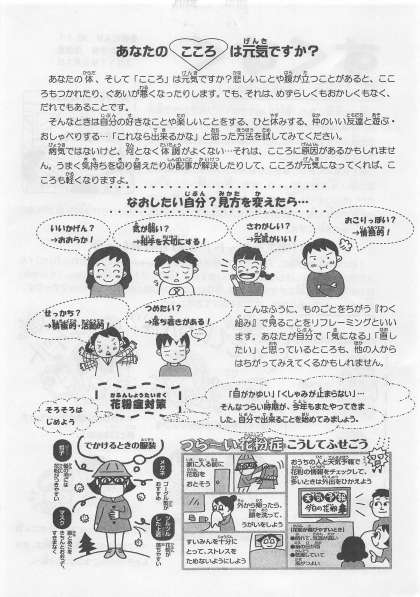 あなたの こころ は元気ですか?
あなたの体、そして「こころ」は元気ですか?悲しいことや腹が立つことがあると、ここ
ろもつかれたり、ぐあいが悪くなったりします。でも、それは、めずらしくもおかしくもなく、
だれでもあることです。
そんなときは自分の好きなことや楽しいことをする、ひと休みする、仲のいい友達と遊ぶ・
おしゃべりする…「これなら出来るかな」と思った方法を試してみてください。
病気ではないけど、何となく体調がよくない…それは、こころに原因があるかもしれませ
ん。うまく気持ちを切り替えたり心配事が解決したりして、こころが元気になってくれば、こ
ころも軽くなりますよ。
なおしたい自分?見方を変えたら…
いいかげん?
→おおらか!
気が弱い?
→相手を大切にする!
さわがしい?
→元気がいい!
おこりっぽい?
→情熱的!
せっかち?
→積極的・活動的!
つめたい?
→落ち着きがある!
こんなふうに、ものごとをちがう『わく
組み』で見ることをリフレーミングといい
ます。あなたが自分で「気になる」「直し
たい」と思っているところも、他の人から
はちがってみえてくるかもしれません。
かふんしょうたいさく
花粉症対策
そろそろ
はじめよう
「目がかゆい」「くしゃみが止まらない…」
そんなつらい時期が、今年もまたやってきま
した。自分で出来ることを始めてみましょう。
でかけるときの服装
メガネ
マスク
つら〜い花粉症 こうしてふせごう
家に入る前に
花粉を
おとそう
外から帰ったら、
顔を洗って、
うがいをしよう
すいみんを十分に
とって、ストレスを
ためないようにしよう
おうちの人と天気予報で
花粉の情報をチェックして、
多いときは外出をひかえよう
天気予報
今日の花粉